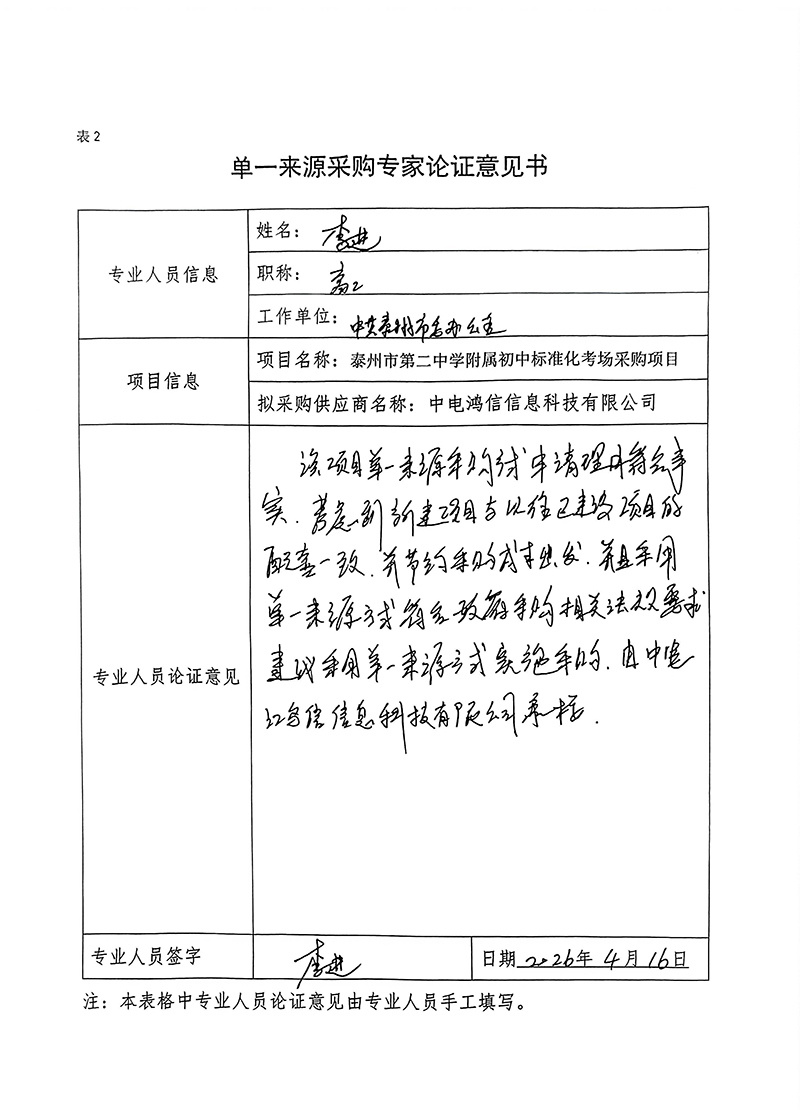 表2
单一来源采购专家论证意见书
专业人员信息
姓名：李进
职称：高工
工作单位：中共泰州市委办公室
项目信息
项目名称：泰州市第二中学附属初中标准化考场采购项目
拟采购供应商名称：中电鸿信信息科技有限公司
专业人员论证意见
该项目单一来源采购方式申请理由符合事
实，考虑到新建项目与以往已建设项目的
配套一致，并节约采购成本出发，并且采用
单一来源方式符合政府采购相关法规要求
建议采用单一来源方式实施采购，由中电
鸿信信息科技有限公司承标.
专业人员签字
李进
日期 2026年 4月 16日
注：本表格中专业人员论证意见由专业人员手工填写。